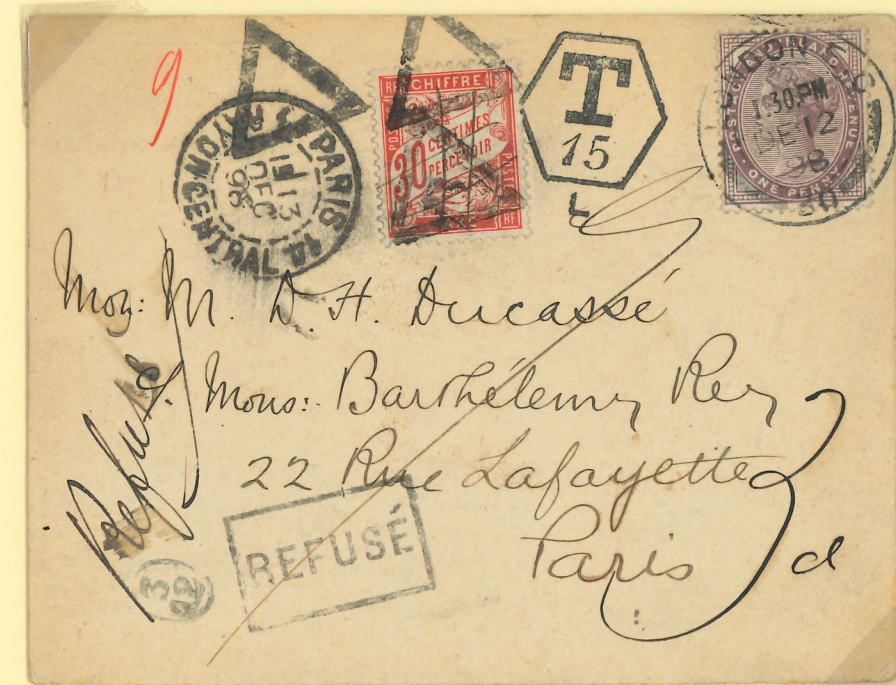 9
PARIS 14
RAYON CENTRAL
13
DEC
98
CHIFFRE
30 CENTIMES
PERCEVOIR
POSTES
RF
T
15
L
LONDON E.C
1.30.PM
DE 12
98
80
POSTAGE AND INLAND REVENUE
ONE PENNY
Mon: M. D. H. Ducassé
Mons: Barthélemy Rey
22 Rue Lafayette
Paris
d
Refusé
REFUSÉ
3
92